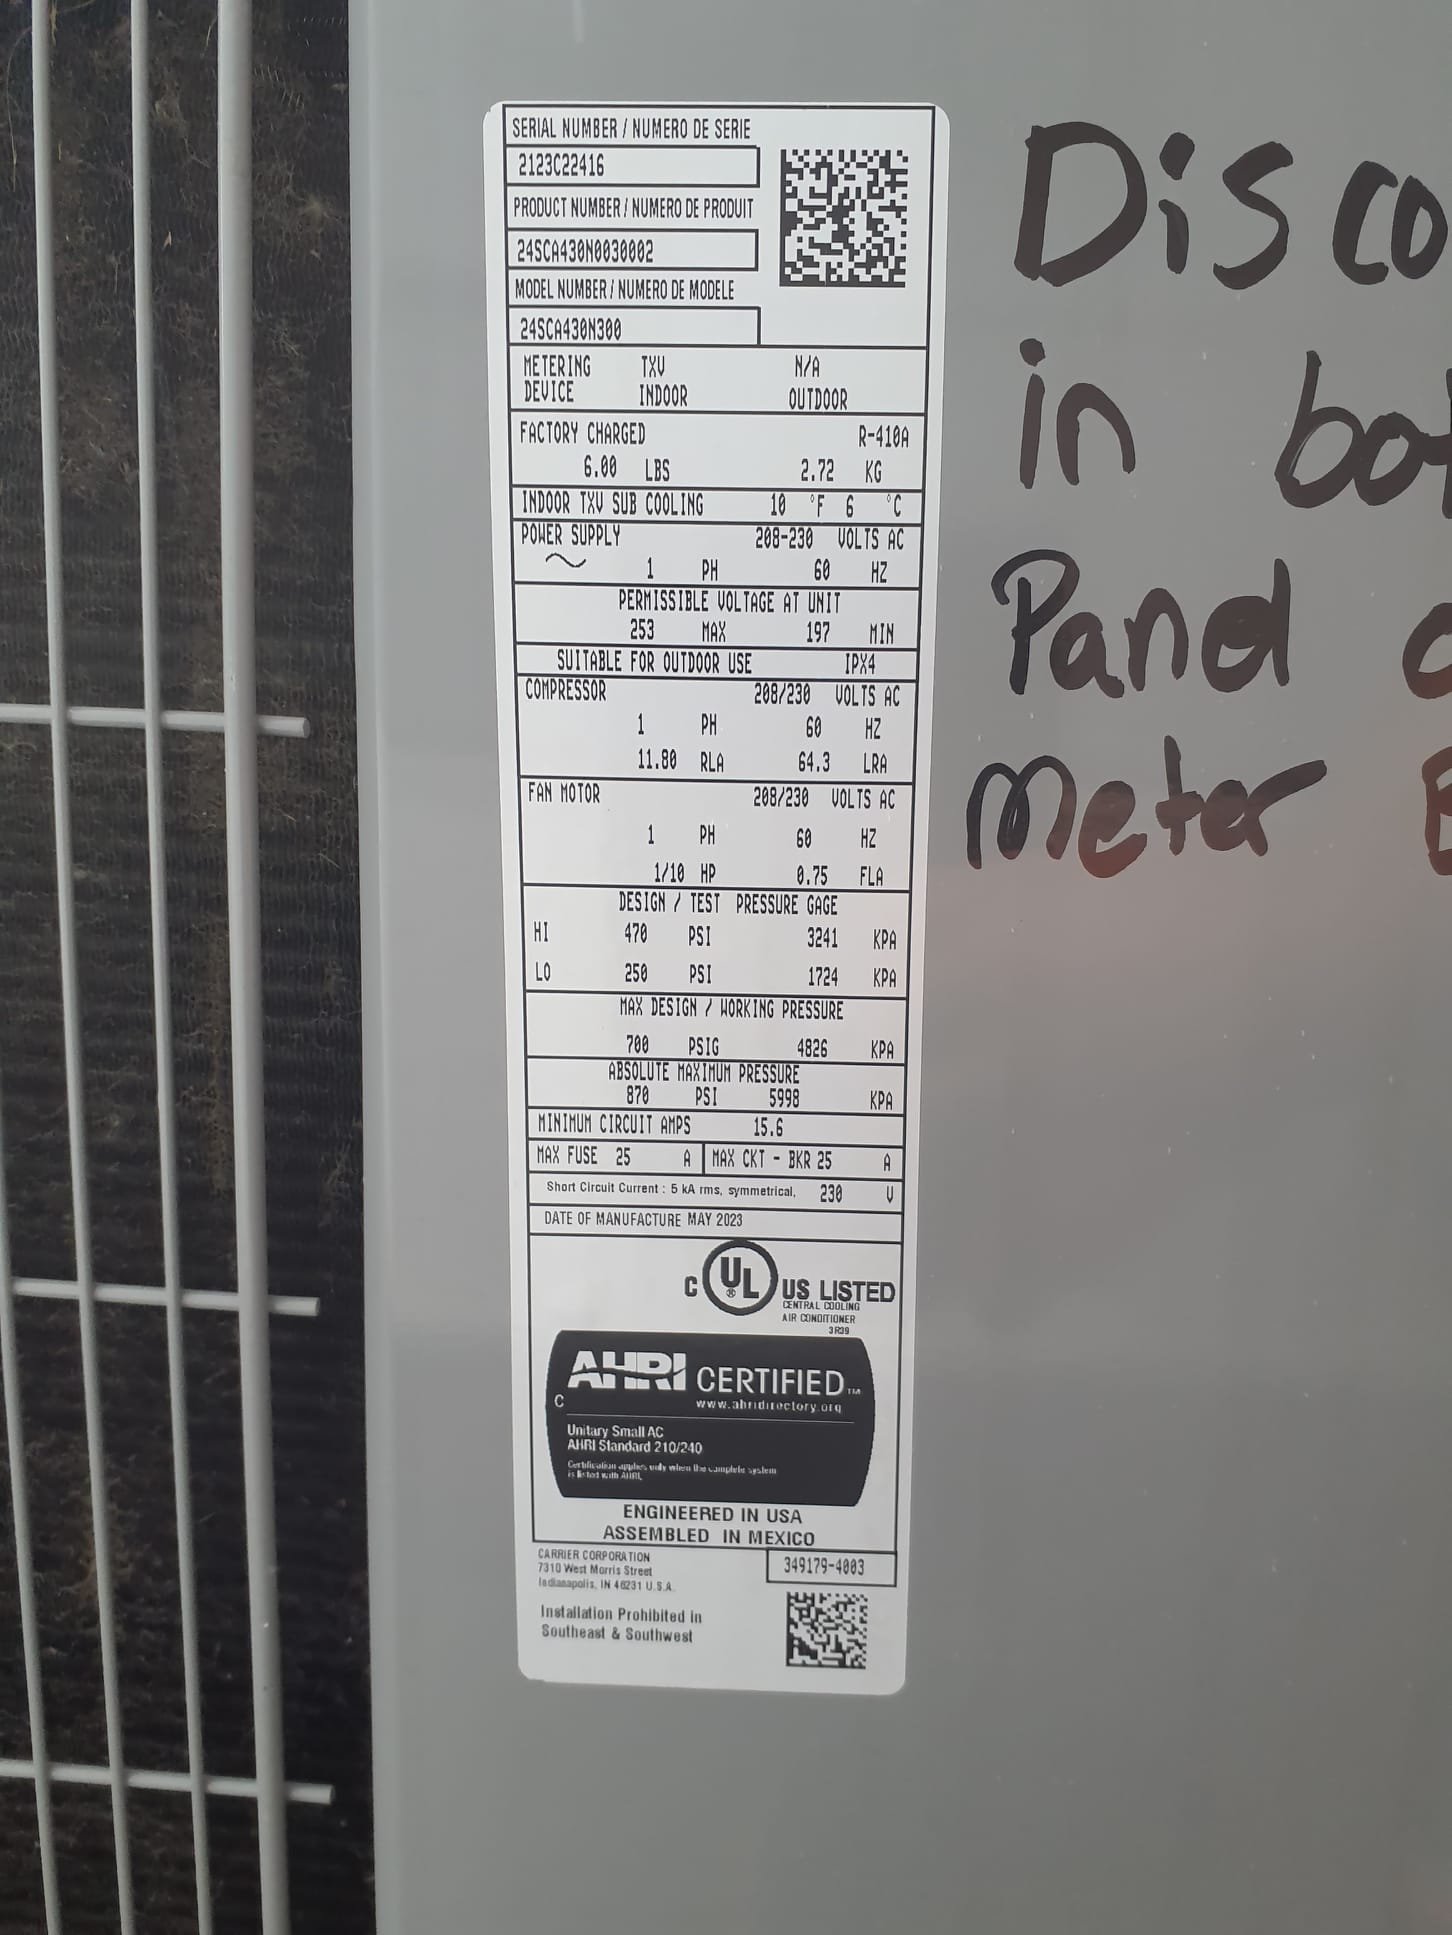 SERIAL NUMBER / NUMERO DE SERIE
2123C22416
PRODUCT NUMBER / NUMERO DE PRODUIT
24SCA430N0030002
MODEL NUMBER / NUMERO DE MODELE
24SCA430N300
METERING TXV N/A
DEVICE INDOOR OUTDOOR
FACTORY CHARGED R-410A
6.00 LBS 2.72 KG
INDOOR TXV SUB COOLING 10 °F 6 °C
POWER SUPPLY 208-230 VOLTS AC
1 PH 60 HZ
PERMISSIBLE VOLTAGE AT UNIT
253 MAX 197 MIN
SUITABLE FOR OUTDOOR USE IPX4
COMPRESSOR 208/230 VOLTS AC
1 PH 60 HZ
11.80 RLA 64.3 LRA
FAN MOTOR 208/230 VOLTS AC
1 PH 60 HZ
1/10 HP 0.75 FLA
DESIGN / TEST PRESSURE GAGE
HI 470 PSI 3241 KPA
LO 250 PSI 1724 KPA
MAX DESIGN / WORKING PRESSURE
700 PSIG 4826 KPA
ABSOLUTE MAXIMUM PRESSURE
870 PSI 5998 KPA
MINIMUM CIRCUIT AMPS 15.6
MAX FUSE 25 A MAX CKT - BKR 25 A
Short Circuit Current : 5 kA rms, symmetrical, 230 V
DATE OF MANUFACTURE MAY 2023
C UL ® US LISTED
CENTRAL COOLING
AIR CONDITIONER
3R39
AHRI CERTIFIED™
C
www.ahridirectory.org
Unitary Small AC
AHRI Standard 210/240
Certification applies only when the complete system
is listed with AHRI.
ENGINEERED IN USA
ASSEMBLED IN MEXICO
CARRIER CORPORATION
7310 West Morris Street
Indianapolis, IN 46231 U.S.A.
349179-4003
Installation Prohibited in
Southeast & Southwest
Disco
in bot
Panel
Meter